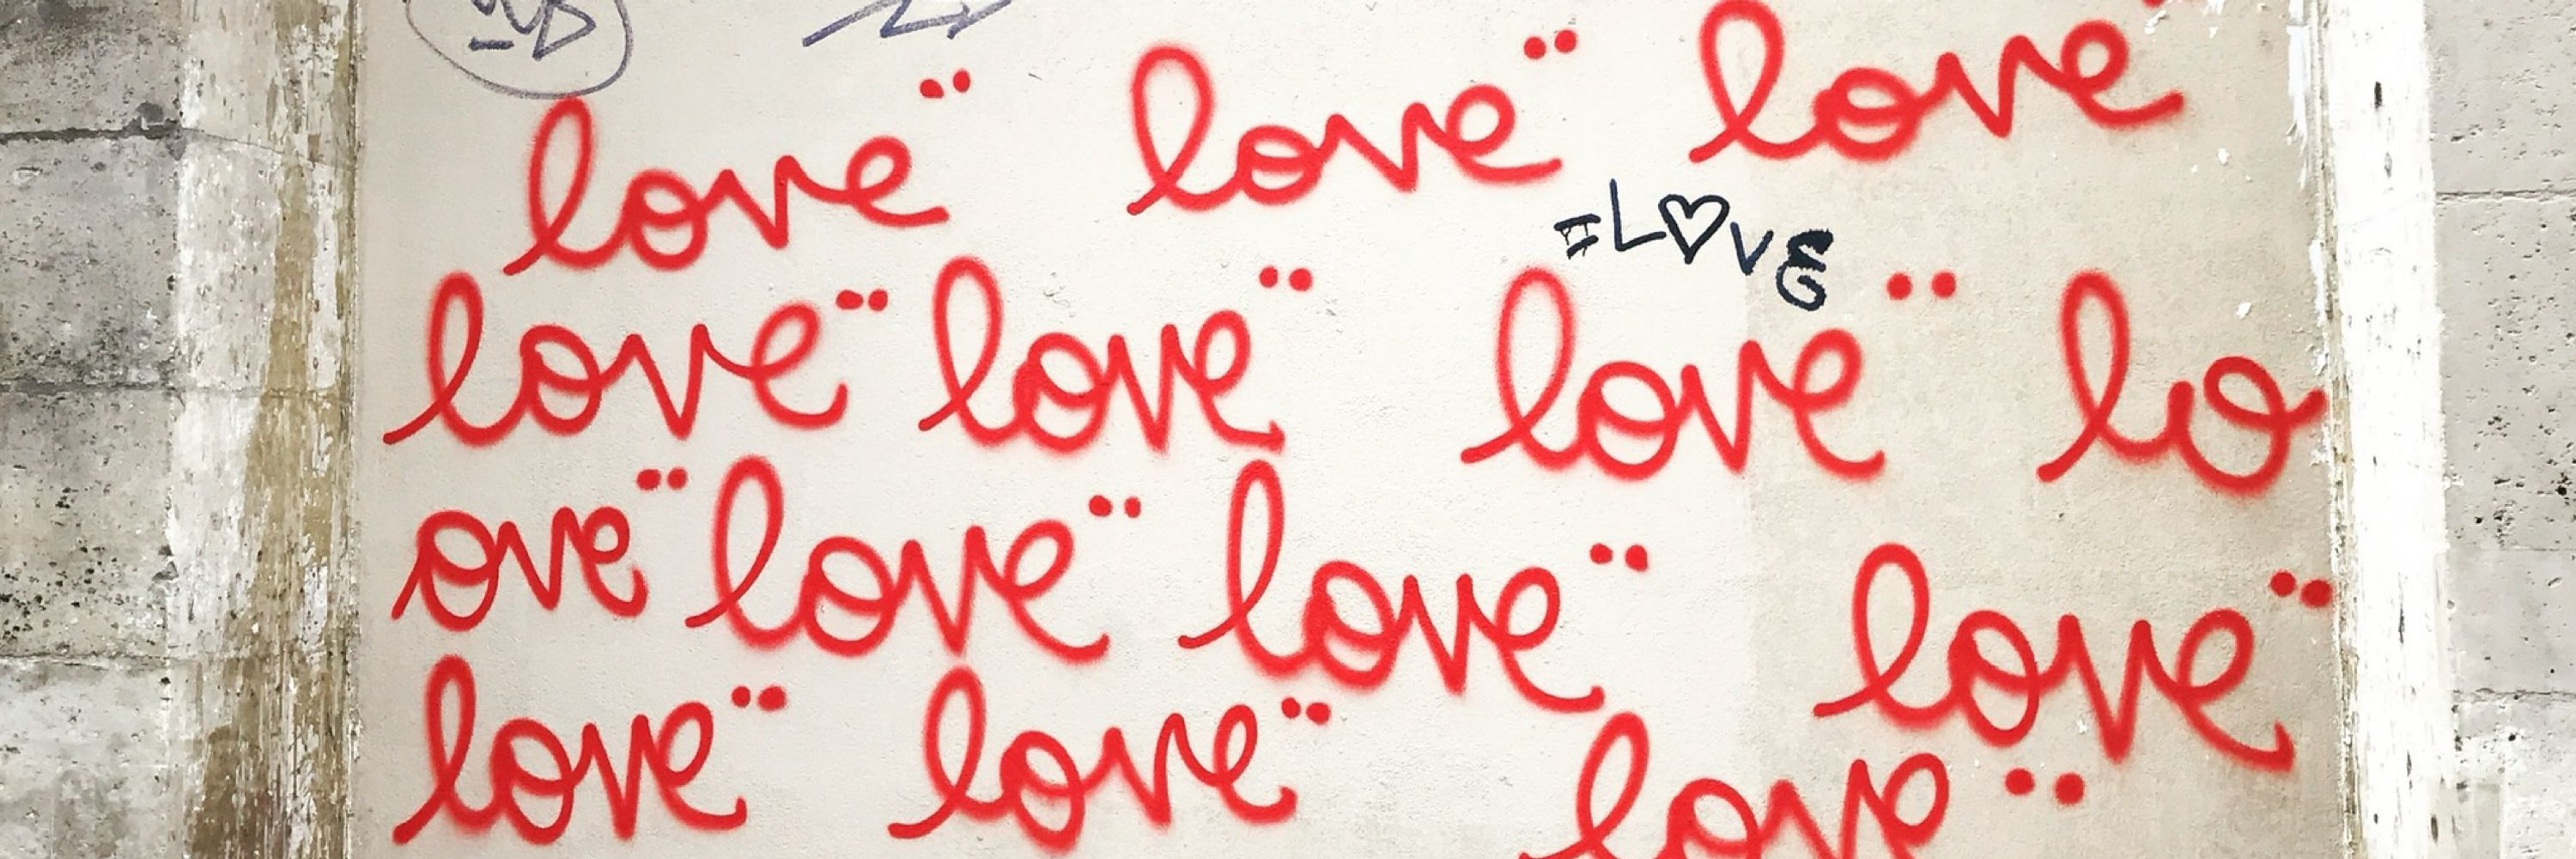 love¨ love¨ love¨
=L♡vE
love¨ love¨ love¨ lo
ove¨ love¨ love¨ love¨
love¨ love¨ love¨